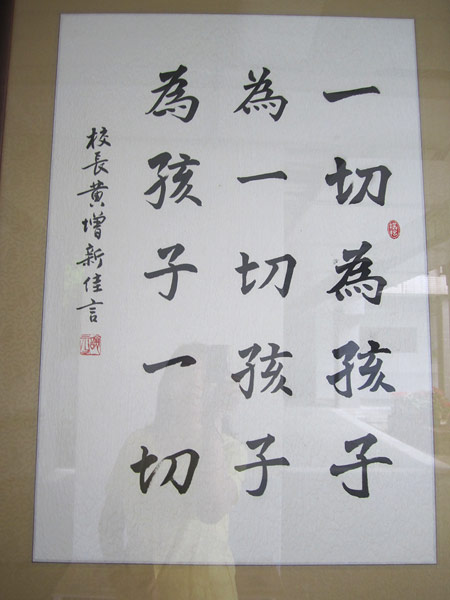 一切為孩子
為一切孩子
為孩子一切
校長黄增新佳言